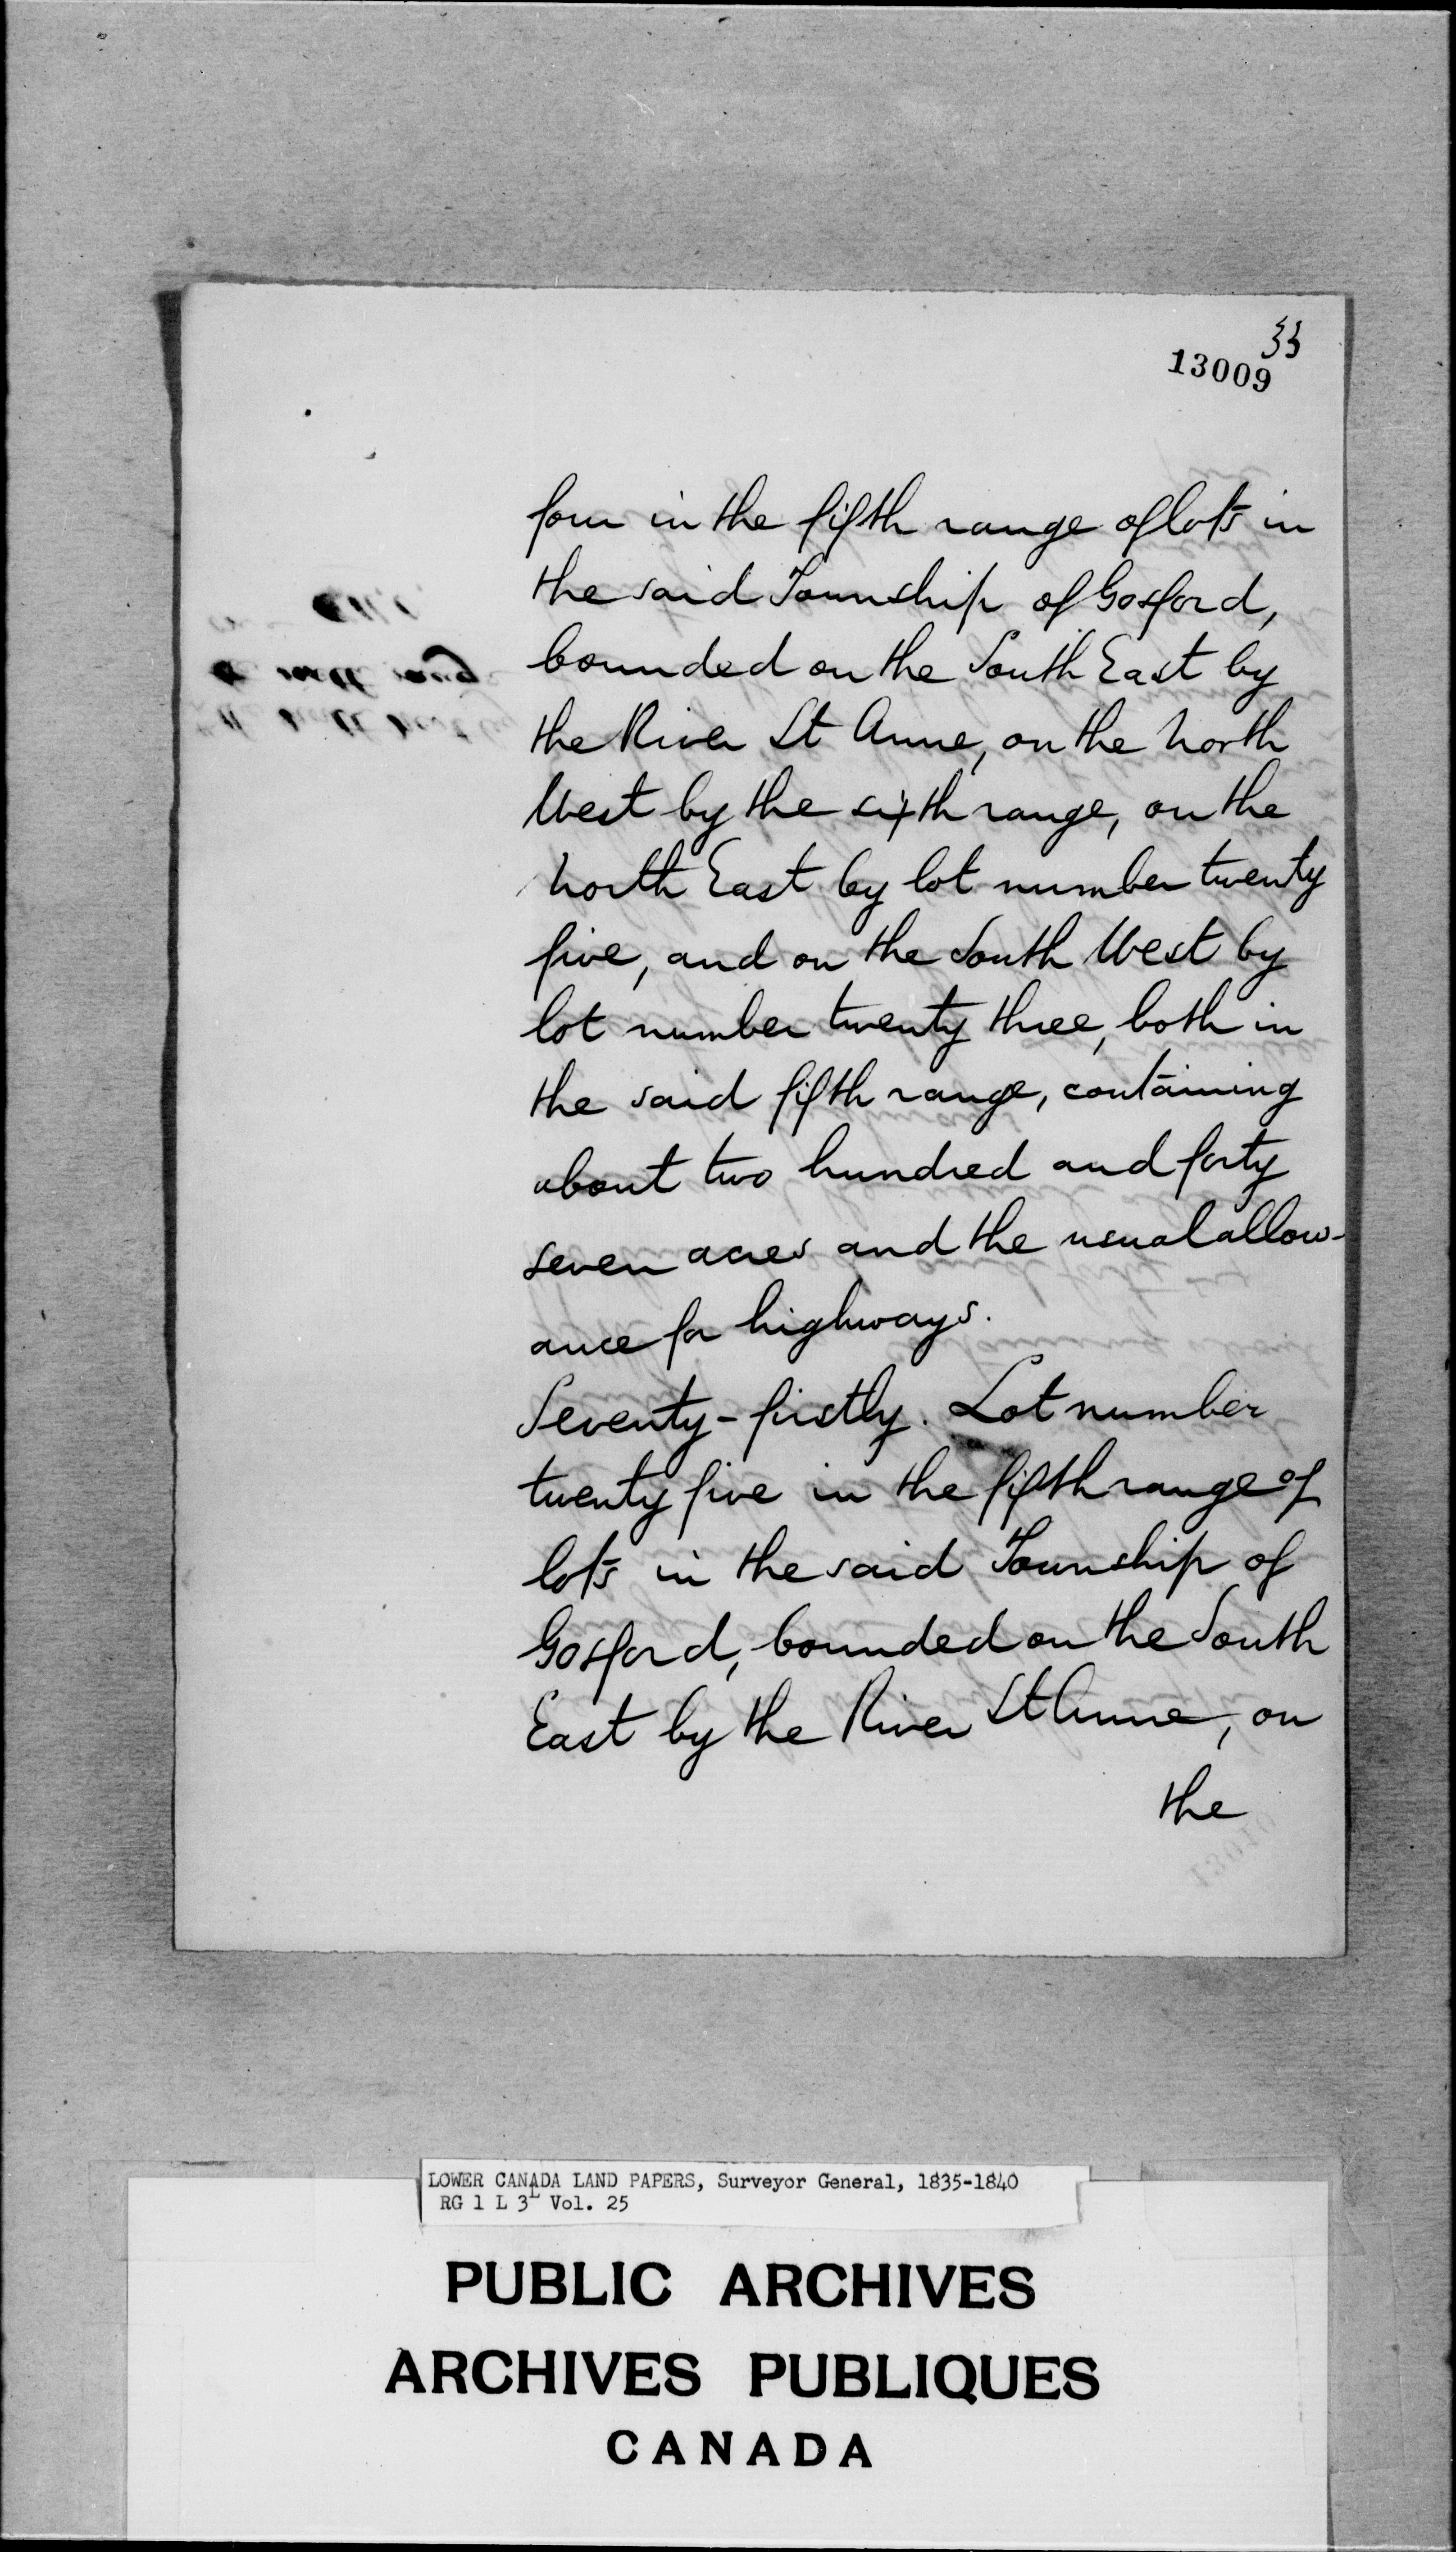 33
13009
four in the fifth range of lots in
the said Township of Gosford,
bounded on the South East by
the River St Anne, on the North
West by the sixth range, on the
North East by lot number twenty
five, and on the South West by
lot number twenty three, both in
the said fifth range, containing
about two hundred and forty
seven acres and the usual allow-
ance for highways.
Seventy-firstly. Lot number
twenty five in the fifth range of
lots in the said Township of
Gosford, bounded on the South
East by the River St Anne, on
the
LOWER CANADA LAND PAPERS, Surveyor General, 1835-1840
RG 1 L 3L Vol. 25
PUBLIC ARCHIVES
ARCHIVES PUBLIQUES
CANADA